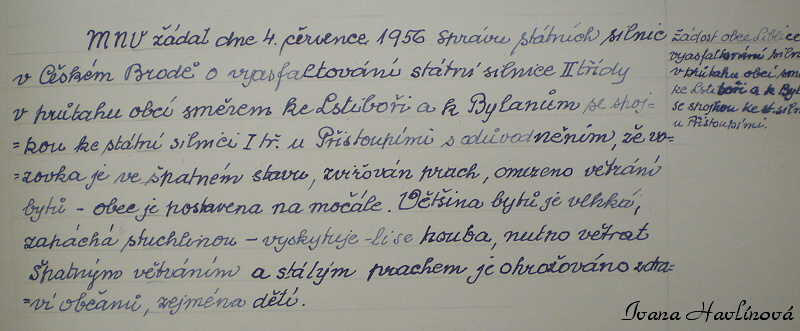 MNV žádal dne 4. července 1956 správu státních silnic
v Českém Brodě o vyasfaltování státní silnice II třídy
v průtahu obcí směrem ke Lstiboři a k Bylanům se spoj-
=kou ke státní silnici I tř. u Přistoupimi s odůvodněním, že vo-
=zovka je ve špatném stavu, zviřován prach, omezeno větrání
bytů - obec je postavena na močále. Většina bytů je vlhká,
zapáchá stuchlinou - vyskytuje-li se houba, nutno větrat
Špatným větráním a stálým prachem je ohrožováno zdra=
ví občanů, zejména dětí.
Žádost obce Liblice
vyasfaltování siln
v průtahu obcí smě
ke Lstiboři a k Byl
se spojkou ke st. siln
u Přistoupimi.
Ivana Havlínová